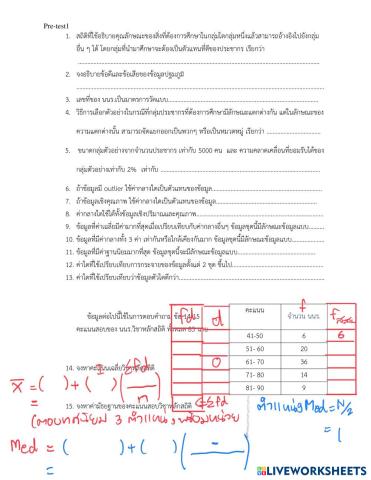 Pre-test1
1. สถิติที่ใช้อธิบายคุณลักษณะของสิ่งที่ต้องการศึกษาในกลุ่มใดกลุ่มหนึ่งแล้วสามารถอ้างอิงไปยังกลุ่ม
อื่น ๆ ได้ โดยกลุ่มที่นำมาศึกษาจะต้องเป็นตัวแทนที่ดีของประชากร เรียกว่า
2. จงอธิบายข้อดีและข้อเสียของข้อมูลปฐมภูมิ
3. เลขที่ของ นนร.เป็นมาตรการวัดแบบ
4. วิธีการเลือกตัวอย่างในกรณีที่กลุ่มประชากรที่ต้องการศึกษามีลักษณะแตกต่างกัน แต่ในลักษณะของ
ความแตกต่างนั้น สามารถจัดแยกออกเป็นพวกๆ หรือเป็นหมวดหมู่ เรียกว่า
5. ขนาดกลุ่มตัวอย่างจากจำนวนประชากร เท่ากับ 5000 คน และ ความคลาดเคลื่อนที่ยอมรับได้ของ
กลุ่มตัวอย่างเท่ากับ 2% เท่ากับ
6. ถ้าข้อมูลมี outlier ใช้ค่ากลางใดเป็นตัวแทนของข้อมูล
7. ถ้าข้อมูลเชิงคุณภาพ ใช้ค่ากลางใดเป็นตัวแทนของข้อมูล
8. ค่ากลางใดใช้ได้ทั้งข้อมูลเชิงปริมาณและคุณภาพ
9. ข้อมูลที่ค่าเฉลี่ยมีค่ามากที่สุดเมื่อเปรียบเทียบกับค่ากลางอื่นๆ ข้อมูลชุดนี้มีลักษณะข้อมูลแบบ
10. ข้อมูลที่มีค่ากลางทั้ง 3 ค่า เท่ากันหรือใกล้เคียงกันมาก ข้อมูลชุดนี้มีลักษณะข้อมูลแบบ
11. ข้อมูลที่มีค่าฐานนิยมมากที่สุด ข้อมูลชุดนี้จะมีลักษณะข้อมูลแบบ
12. ค่าใดที่ใช้เปรียบเทียบการกระจายของข้อมูลตั้งแต่ 2 ชุด ขึ้นไป
13. ค่าใดที่ใช้เปรียบเทียบว่าข้อมูลตัวใดดีกว่า
ข้อมูลต่อไปนี้ใช้ในการตอบคำถาม ข้อ 14-15
คะแนนสอบของ นนร.วิชาหลักสถิติ ทั้งหมด 85 นาย
fd d คะแนน f จำนวน นนร. f สะสม
41-50 6 6
51- 60 20
0 61- 70 36
71- 80 14
81- 90 9
14. จงหาคะแนนเฉลี่ยวิชาหลักสถิติ
X̄ = ( ) + ( ) (Σfd / n)
=
15. จงหาค่ามัธยฐานของคะแนนสอบวิชาหลักสถิติ Σfd
ตำแหน่ง Med = N/2
= (
Med = ( ) + ( ) ( - )
=
LIVEWORKSHEETS